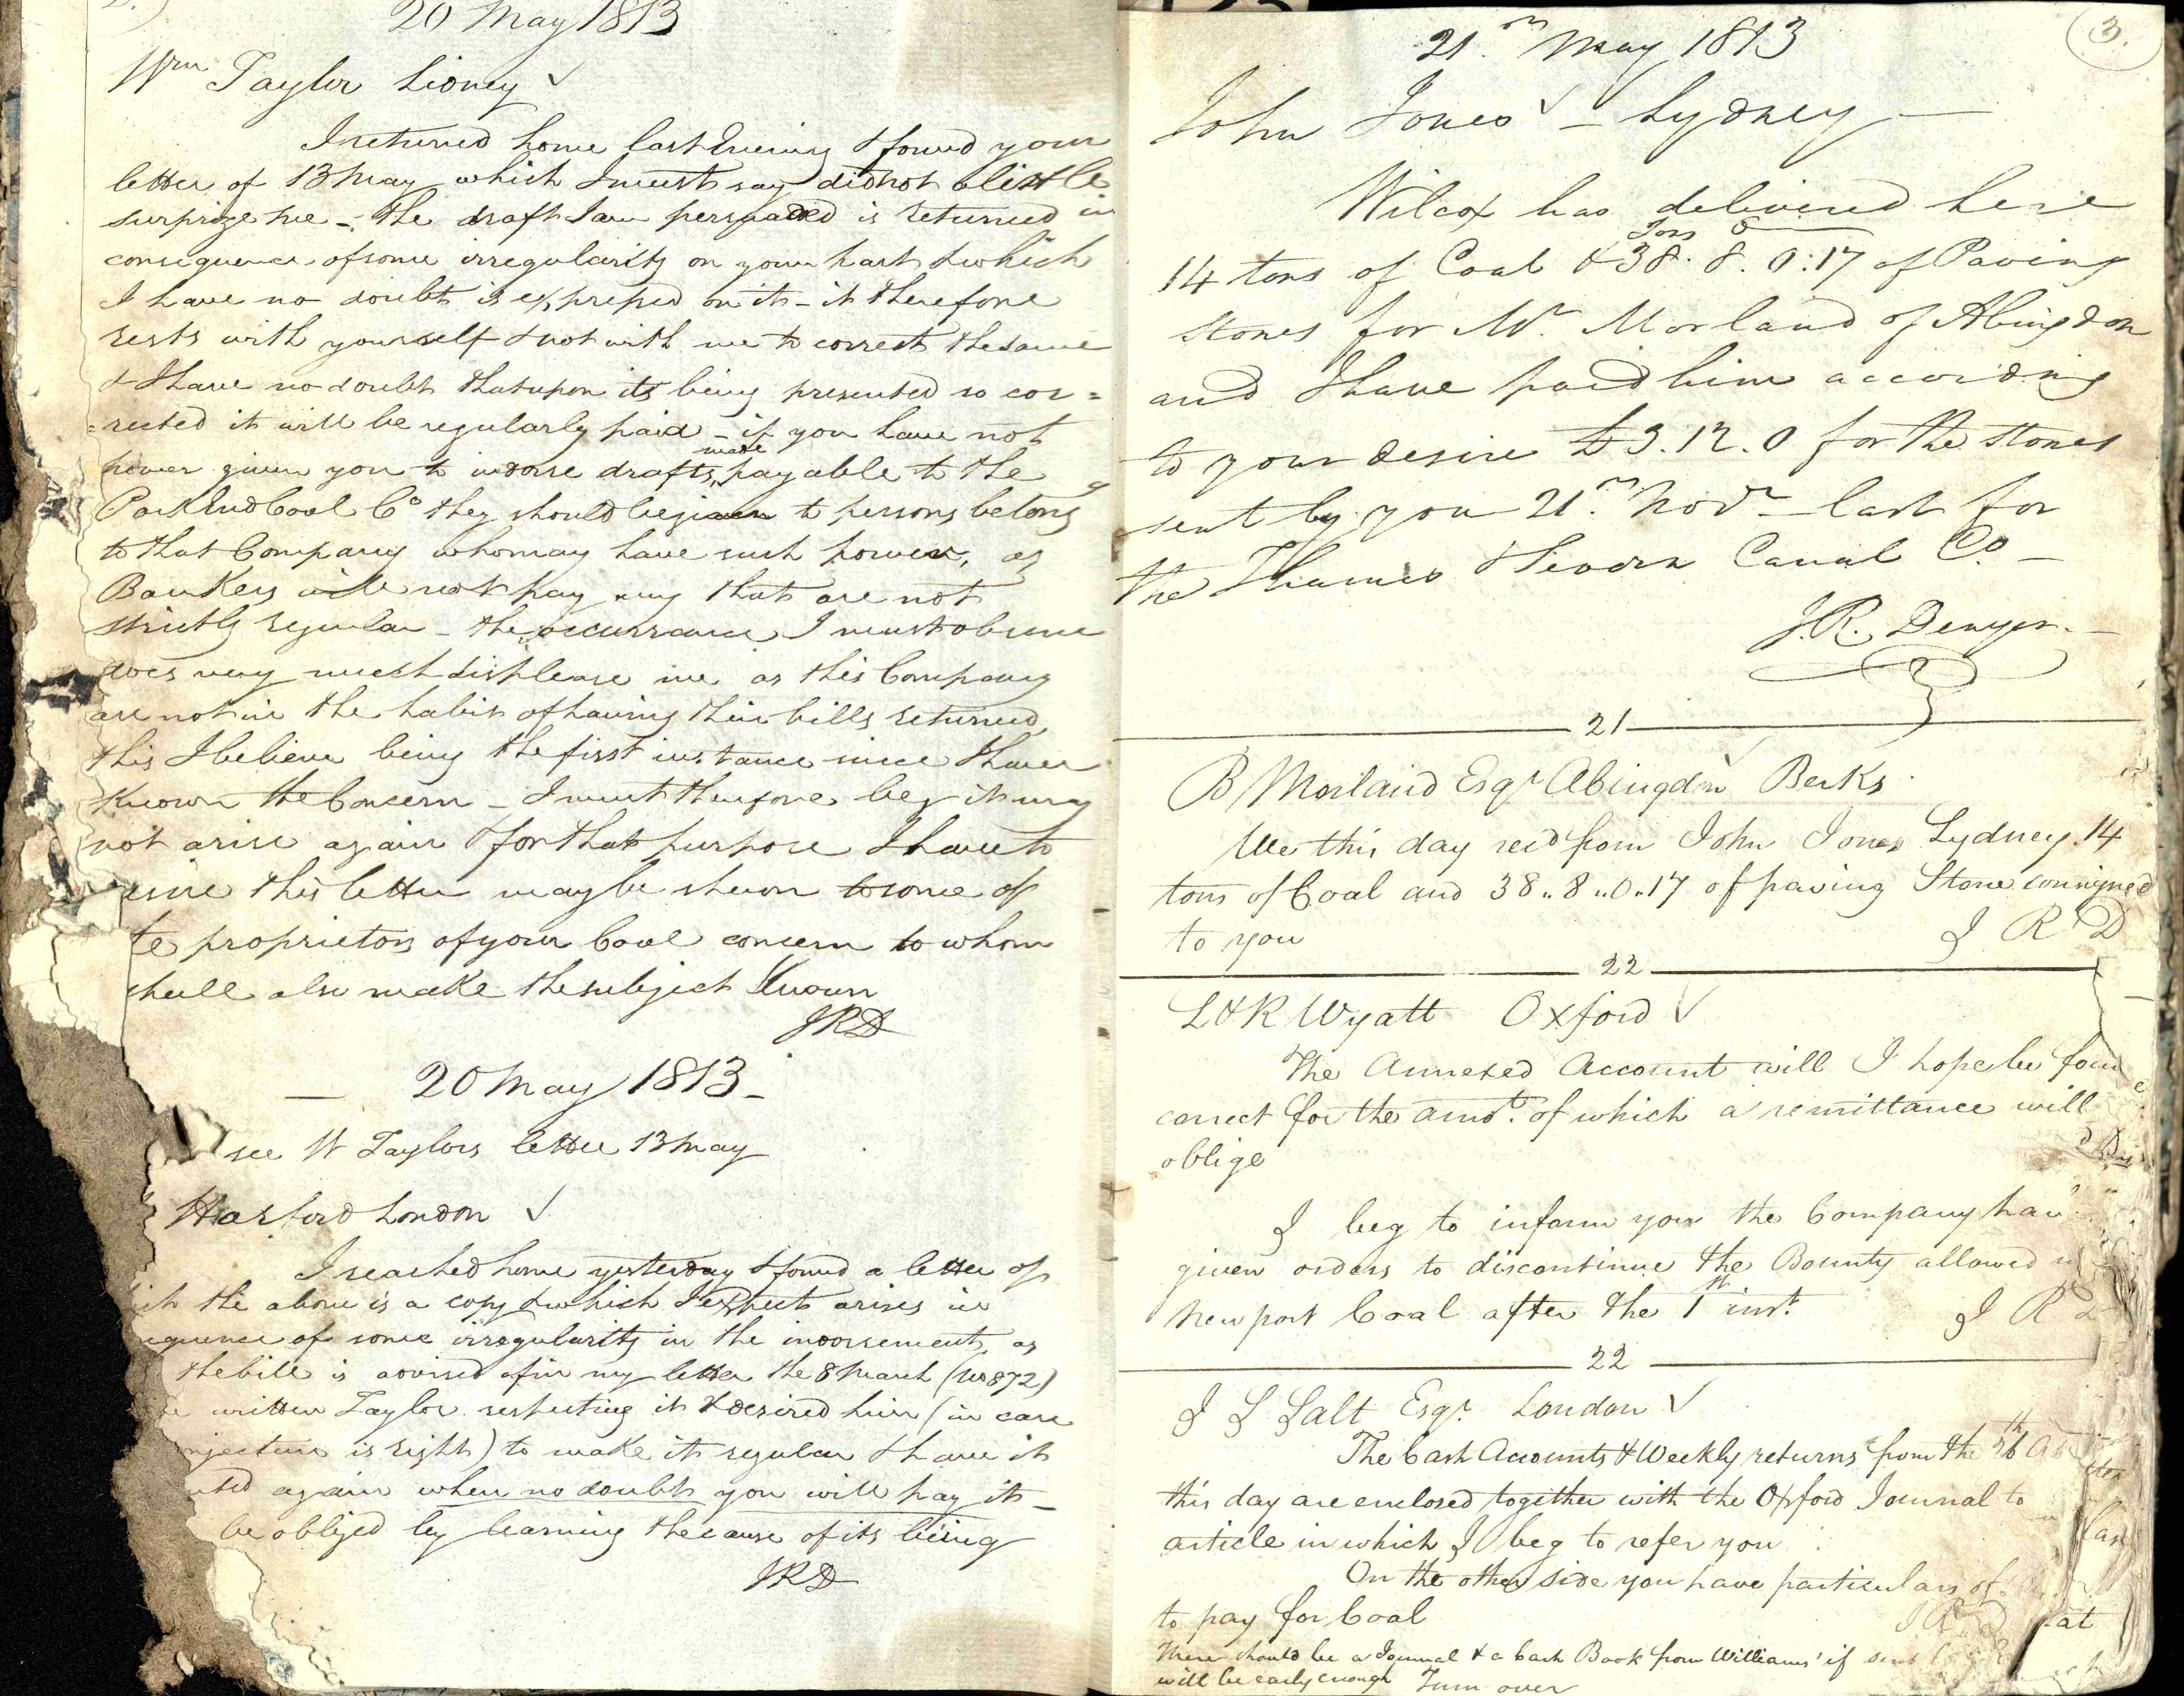 20 May 1813
Wm Taylor Lidney ✓
I returned home last Evening & found your
letter of 13 May which I must say did not a little
surprize me - the draft I am persuaded is returned in
consequence of some irregularity on your part & which
I have no doubt is expressed on it - it therefore
rests with yourself & not with me to correct the same
& I have no doubt that upon its being presented so cor=
=rected it will be regularly paid - if you have not
power given you to indorse drafts made payable to the
Park End Coal Co they should be given to persons belong
to that Company who may have such power, as
Bankers will not pay any that are not
strictly regular - the occurrance I must observe
does very much displease me as this Company
are not in the habit of having their bills returned,
this I believe being the first instance since I have
Known the Concern - I must therefore beg it may
not arise again & for that purpose I have to
esire this letter may be shewn to some of
te proprietors of your Coal concern to whom
shall also make the subject Known
JRD
20 May 1813 -
see W Taylors letter 13 May
Harford London ✓
I reached home yesterday & found a letter of
ich the above is a copy & which I expect arises in
equence of some irregularity in the indorsement, as
the bill is advised of in my letter the 8 March (No 872)
written Taylor respecting it & desired him (in case
njecture is right) to make it regular & have it
ted again when no doubt you will pay it -
be obliged by learning the cause of its being
JRD
3.
21st May 1813
John Jones ✓ - Lydney -
Wilcox has delivered here
14 tons of Coal & 38 Tons . 8 . 0 : 17 of Paving
stones for Mr. Morland of Abingdon
and I have paid him according
to your desire £3.12.0 for the stones
sent by you 21st Novr last for
the Thames & Severn Canal Co -
J.R. Denyer. -
21
B Morland Esqr Abingdon ✓ Berks
We this day recd from John Jones Lydney 14
tons of Coal and 38..8..0..17 of paving Stone consigned
to you
J R D
22
L & R Wyatt Oxford ✓
The Annexed Account will I hope be foun
correct for the amot. of which a remittance will
oblige
I beg to inform you the Company hav
given orders to discontinue the Bounty allowed
Newport Coal after the 1st inst.
J R D
22
J L Salt Esqr. London ✓
The Cash Accounts & Weekly returns from the
this day are enclosed together with the Oxford Journal to
article in which I beg to refer you
On the other side you have particulars of
to pay for Coal
J R D
at
There should be a Journal & a Cash Book from Williams' if sent
will be early enough Turn over